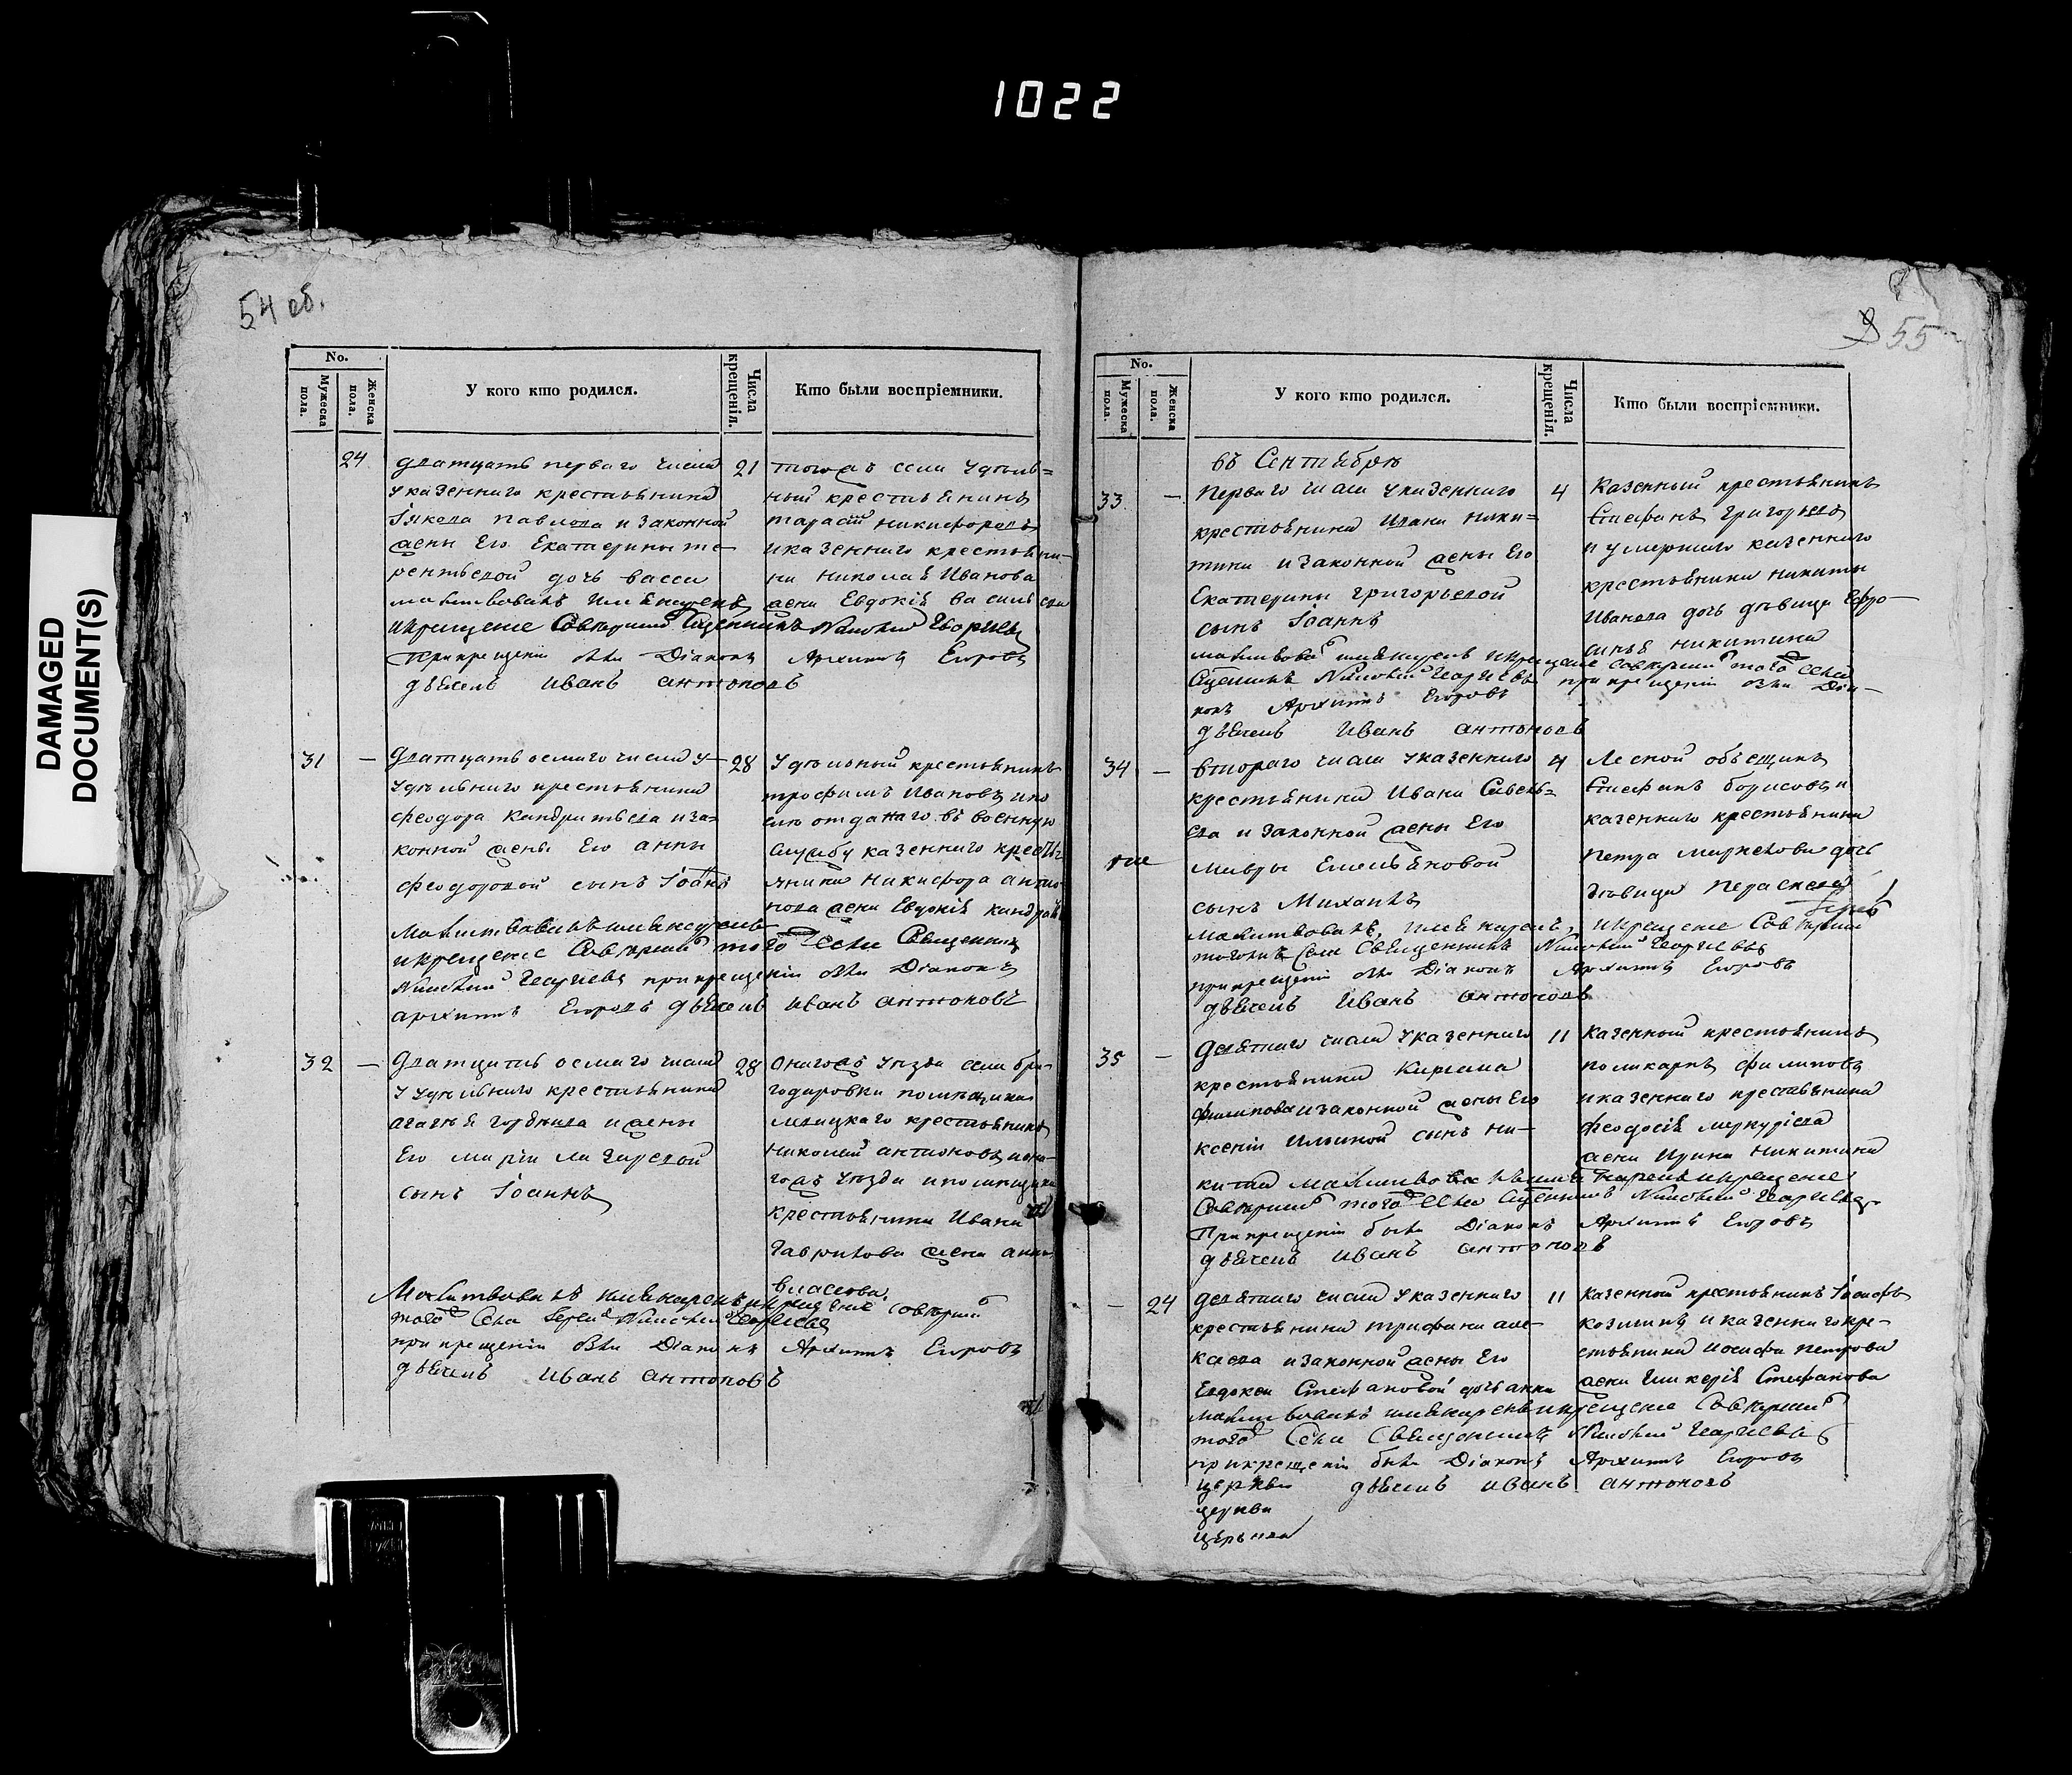 1022
DAMAGED
DOCUMENT(S)
54 об.
No.
Мужеска пола.
Женска пола.
У кого кто родился.
Числа крещенія.
Кто были воспріемники.
24 дватцать перваго числа 21
указеннаго крестьянина
Іякова Павлова и законной
жены Его Екатерины те-
рентьевой дочь васса
молитвовалъ имянарекъ
икрещение Совершилъ Георгиевъ
При крещеніи были Діаконъ Архиппъ Егоровъ
дьячекъ иванъ антоновъ
тогожъ села удѣль=
ный крестьянинъ
тарасій никифоровъ
иказеннаго крестьяни-
на николая Иванова
жена Евдокія васильева
31 — Дватцать осмаго числа у- 28
удѣльнаго крестьянина
феодора Кандратьева иза-
конной жены Его анны
феодоровой сынъ Іоаннъ
Молитвовалъ имянарекъ
икрещение Совершилъ того Села Священникъ
Георгиевъ при крещеніи были Діаконъ
архиппъ Егоровъ дьячекъ иванъ антоновъ
Удѣльный крестьянинъ
трофимъ Ивановъ ино
отданаго въ военную
службу казеннаго кресть
янина Никифора анто-
нова жена Евдокія кандрать
32 — Дватцать осмаго числа 28
У удѣльнаго крестьянина
агафья гордѣева и жены
Его маріи лазаревой
сынъ Іоаннъ
Молитвовалъ имянарекъ икрещение совершилъ
того Села Іерей Георгиевъ
при крещеніи были Діаконъ Архиппъ Егоровъ
дьячекъ иванъ антоновъ
Оногожъ уѣзда села бри-
годировки помѣщика
крестьянинъ
николай антоновъ ионо-
гожъ уѣзда ипомѣщика
крестьянина Ивана
Гаврилова жена анна
власова
55
No.
Мужеска пола.
Женска пола.
У кого кто родился.
Числа крещенія.
Кто были воспріемники.
въ Сентябрѣ
33 — Перваго числа указеннаго 4
крестьянина Ивана Ники=
тина изаконной жены Его
Екатерины григорьевой
сынъ Іоаннъ
молитвовалъ имянарекъ икрещение совершилъ того Села
Георгиевъ при крещеніи были Діа-
конъ Архиппъ Егоровъ
дьячекъ Иванъ антоновъ
Казенный крестьянинъ
Стефанъ Григорьевъ
и умершаго казеннаго
крестьянина никиты
Иванова дочь дѣвица Ефро-
синья никитина
34 — втораго числа указеннаго 4
крестьянина Ивана Савель=
ева и законной жены Его
мавры Емельяновой
сынъ Михаилъ
молитвовалъ, имянарекъ, икрещение Совершилъ
тогожъ Села Священникъ Георгиевъ
при крещеніи были Діаконъ Архиппъ Егоровъ
дьячекъ Иванъ антоновъ
Лесной объещикъ
Стефанъ борисовъ и
казеннаго крестьянина
Петра маркелова дочь
дѣвица Параскева
35 — девятаго числа указеннаго 11
крестьянина Кирилла
филипова изаконной жены Его
ксеніи Ильиной сынъ ни-
кита молитвовалъ имянарекъ икрещение
Совершилъ того Села Георгиевъ
При крещеніи были Діаконъ Архиппъ Егоровъ
дьячекъ иванъ антоновъ
казенный крестьянинъ
поликарпъ филиповъ
иказеннаго крестьянина
феодосія меркуріева
жена Ирина Никитина
— 24 девятаго числа указеннаго 11
крестьянина трифана але-
ксева изаконной жены Его
Евдокеи Стефановой дочь анна
молитвовалъ имянарекъ икрещение Совершилъ
того Села Священникъ Георгиевъ
при крещеніи были Діаконъ Архиппъ Егоровъ
церкви дьячекъ иванъ антоновъ
церкви
церькви
казенной крестьянинъ Іосифъ
козминъ и казеннаго кре-
стьянина иосифа петрова
жена гликерія Стефанова